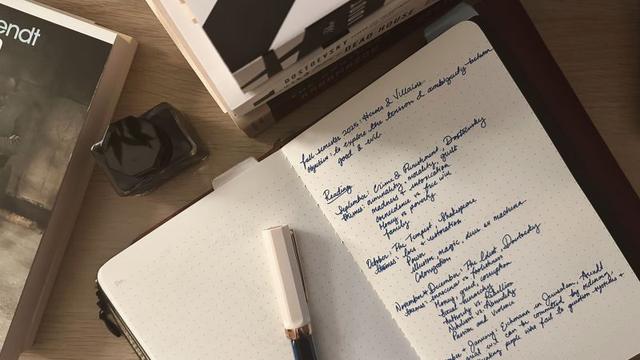 endt
DOSTOEVSKY
DEAD HOUSE
Fall semester 2025: Heroes & Villains
to explore the tension & ambiguity between
good & evil
Reading
September: Crime & Punishment, Dostoevsky
themes: criminality, morality, guilt
madness & intoxication
coincidence vs free will
Money vs poverty
family
October: The Tempest, Shakespeare
themes: Loss & restoration
Power
illusion, magic, deus ex machina
Colonization
November & December: The Idiot, Dostoevsky
themes: innocence vs foolishness
Money, greed, corruption
Social hierarchy
Authority vs Rebellion
Nihilism vs Morality
Passion and Violence
+ January: Eichmann in Jerusalem, Arendt
evil can be committed by ordinary
people who fail to question